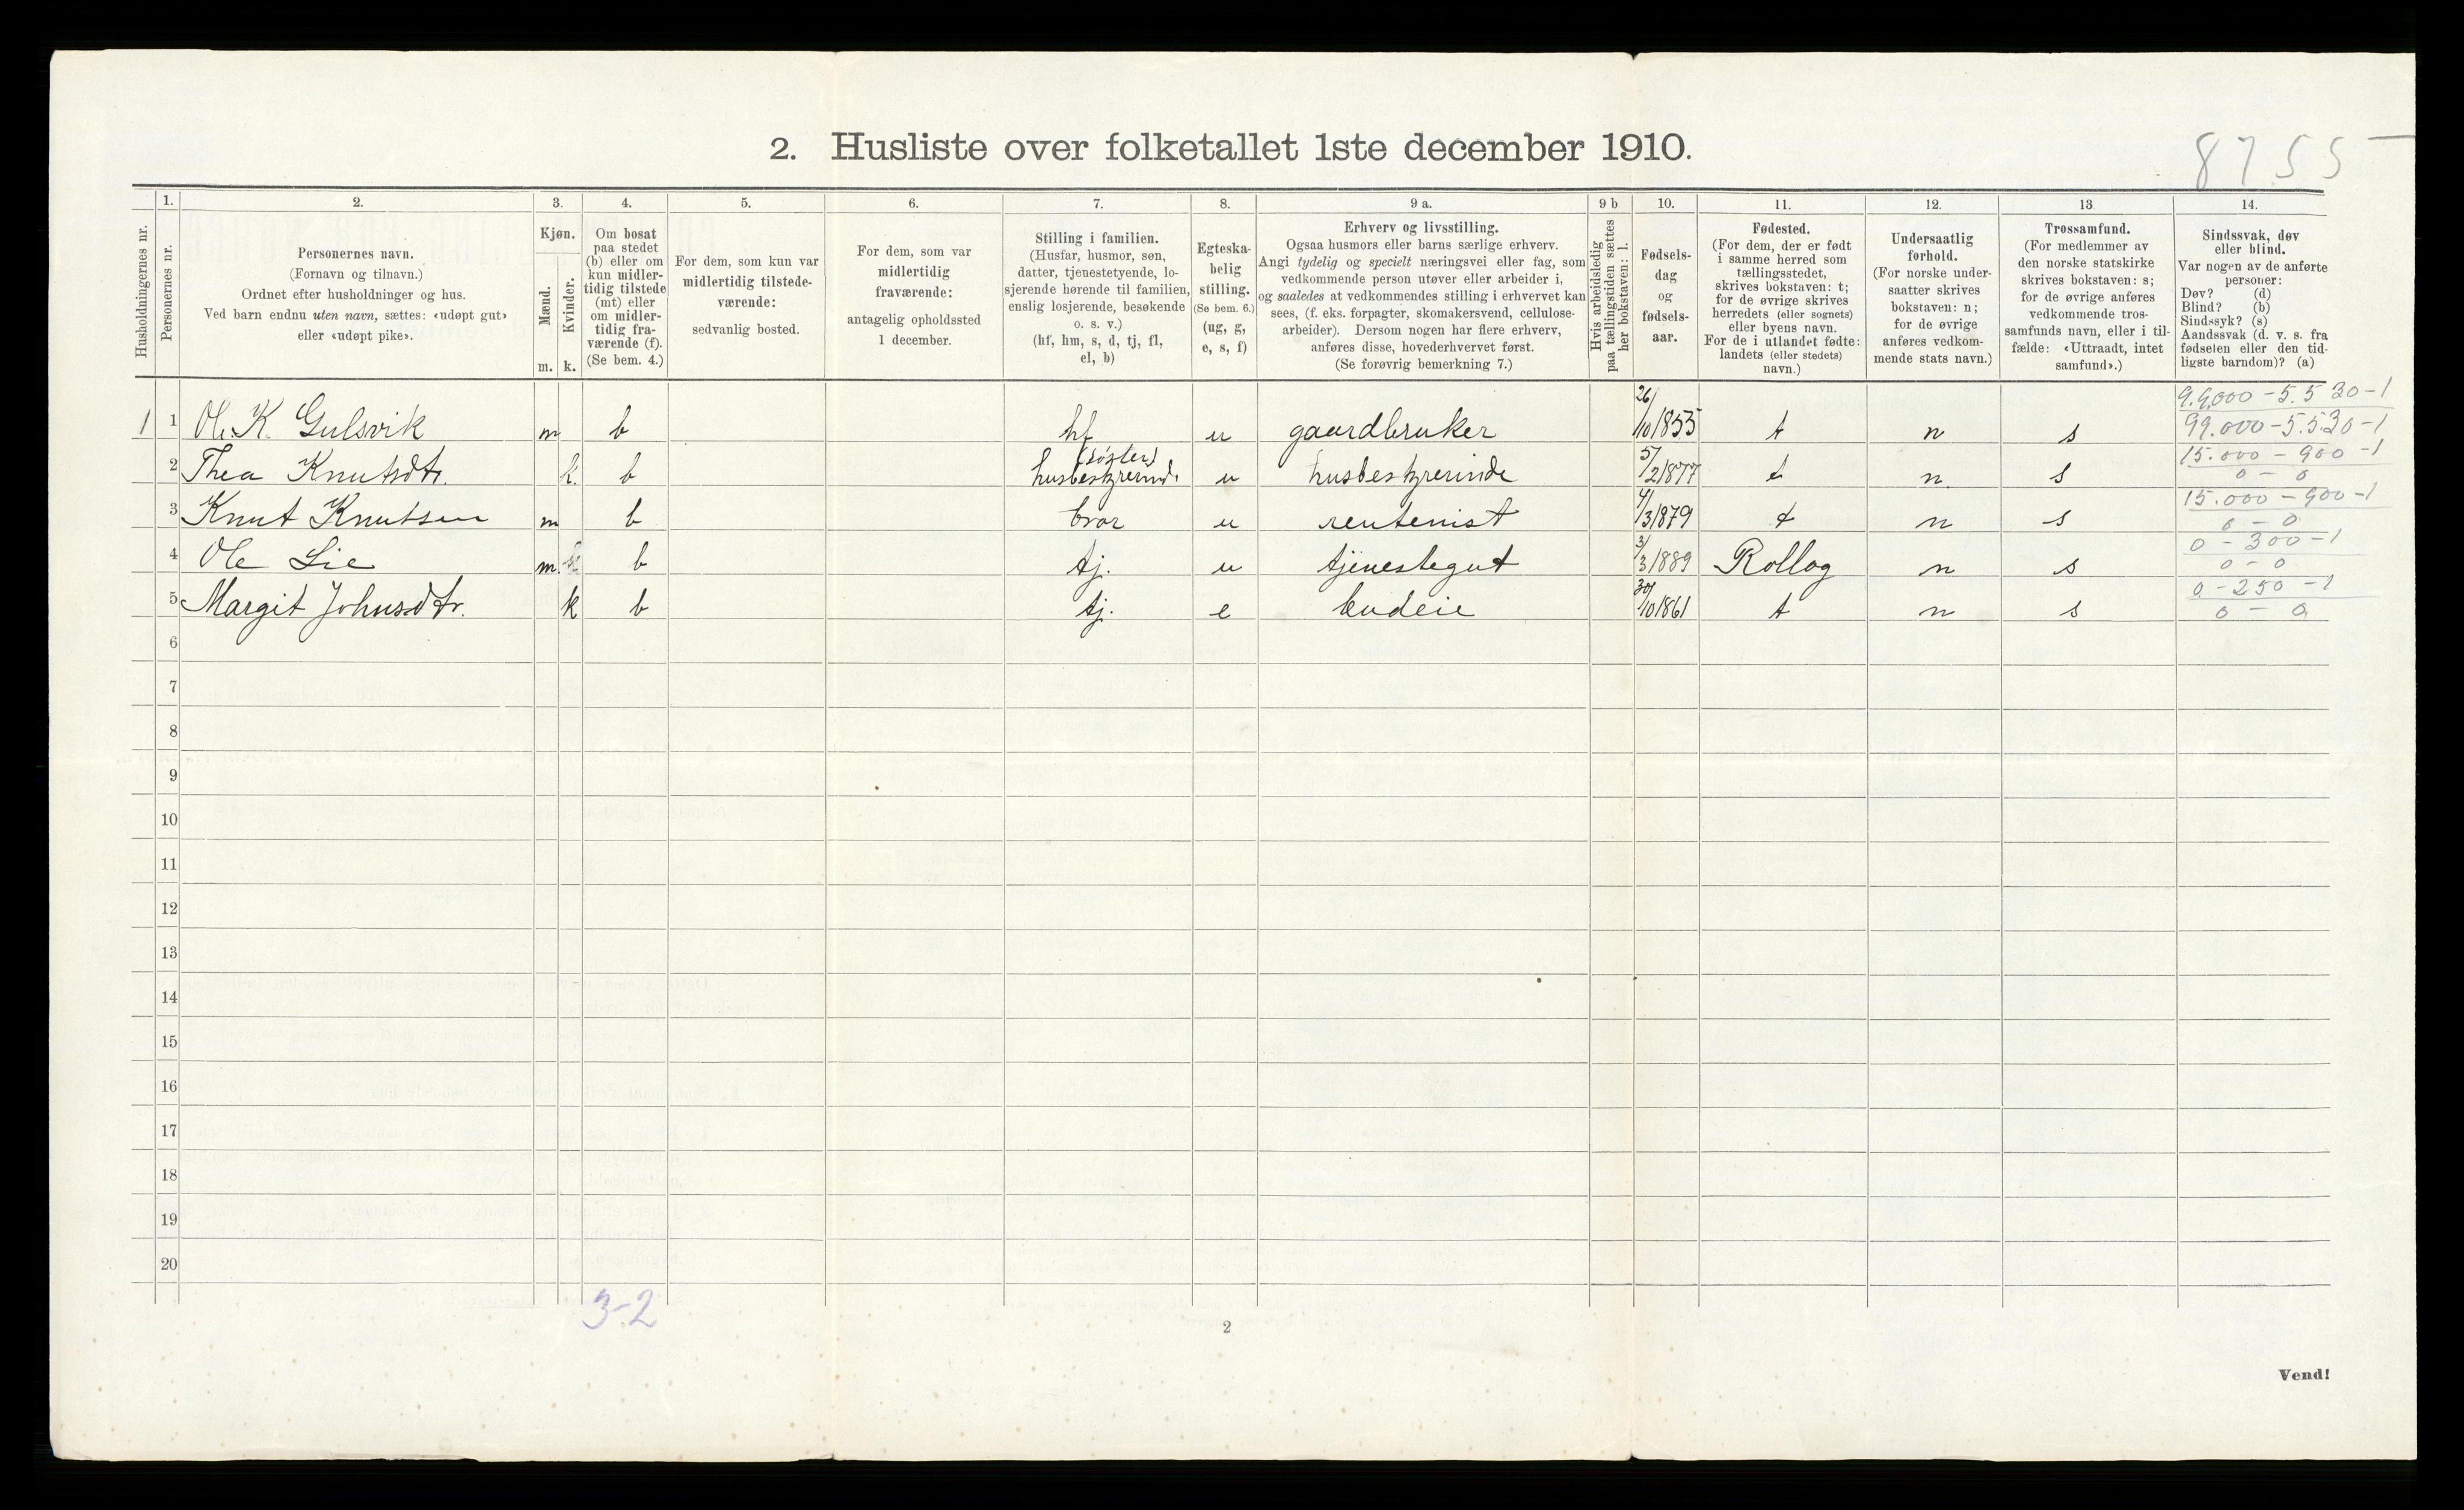 2. Husliste over folketallet 1ste december 1910.
8755
Husholdningernes nr.
1.
Personernes nr.
2.
Personernes navn.
(Fornavn og tilnavn.)
Ordnet efter husholdninger og hus.
Ved barn endnu uten navn, sættes: «udøpt gut»
eller «udøpt pike».
3.
Kjøn.
Mænd.
Kvinder.
m. k.
4.
Om bosat
paa stedet
(b) eller om
kun midler-
tidig tilstede
(mt) eller
om midler-
tidig fra-
værende (f).
(Se bem. 4.)
5.
For dem, som kun var
midlertidig tilstede-
værende:
sedvanlig bosted.
6.
For dem, som var
midlertidig
fraværende:
antagelig opholdssted
1 december.
7.
Stilling i familien.
(Husfar, husmor, søn,
datter, tjenestetyende, lo-
sjerende hørende til familien,
enslig losjerende, besøkende
o. s. v.)
(hf, hm, s, d, tj, fl,
el, b)
8.
Egteska-
belig
stilling.
(Se bem. 6.)
(ug, g,
e, s, f)
9 a.
Erhverv og livsstilling.
Ogsaa husmors eller barns særlige erhverv.
Angi tydelig og specielt næringsvei eller fag, som
vedkommende person utøver eller arbeider i,
og saaledes at vedkommendes stilling i erhvervet kan
sees, (f. eks. forpagter, skomakersvend, cellulose-
arbeider). Dersom nogen har flere erhverv,
anføres disse, hovederhvervet først.
(Se forøvrig bemerkning 7.)
9 b
Hvis arbeidsledig
paa tællingstiden sættes
her bokstaven: l.
10.
Fødsels-
dag
og
fødsels-
aar.
11.
Fødested.
(For dem, der er født
i samme herred som
tællingsstedet,
skrives bokstaven: t;
for de øvrige skrives
herredets (eller sognets)
eller byens navn.
For de i utlandet fødte:
landets (eller stedets)
navn.)
12.
Undersaatlig
forhold.
(For norske under-
saatter skrives
bokstaven: n;
for de øvrige
anføres vedkom-
mende stats navn.)
13
Trossamfund.
(For medlemmer av
den norske statskirke
skrives bokstaven: s;
for de øvrige anføres
vedkommende tros-
samfunds navn, eller i til-
fælde: «Uttraadt, intet
samfund».)
14.
Sindssvak, døv
eller blind.
Var nogen av de anførte
personer:
Døv? (d)
Blind? (b)
Sindssyk? (s)
Aandssvak (d. v. s. fra
fødselen eller den tid-
ligste barndom)? (a)
99,000 - 5.530 - 1
1 1 Ole K. Gulsvik m b hf u gaardbruker 26/10 1855 t n s 99.000 - 5.530 - 1
(søster) 15.000 - 900 - 1
2 Thea Knutsdtr. k. b husbestyrerinde u husbestyrerinde 5/2 1877 t n. s 0 - 0
15.000 - 900 - 1
3 Knut Knutsen m b bror u rentenist 4/3 1879 t n s 0 - 0
0 - 300 - 1
4 Ole Lie m. b tj. u tjenestegut 3/3 1889 Rollag n s 0 - 0
0 - 250 - 1
5 Margit Johnsdtr. k b tj. e budeie 30/10 1861 t n s 0 - 0
6
7
8
9
10
11
12
13
14
15
16
17
18
19
20
3-2
2
Vend!